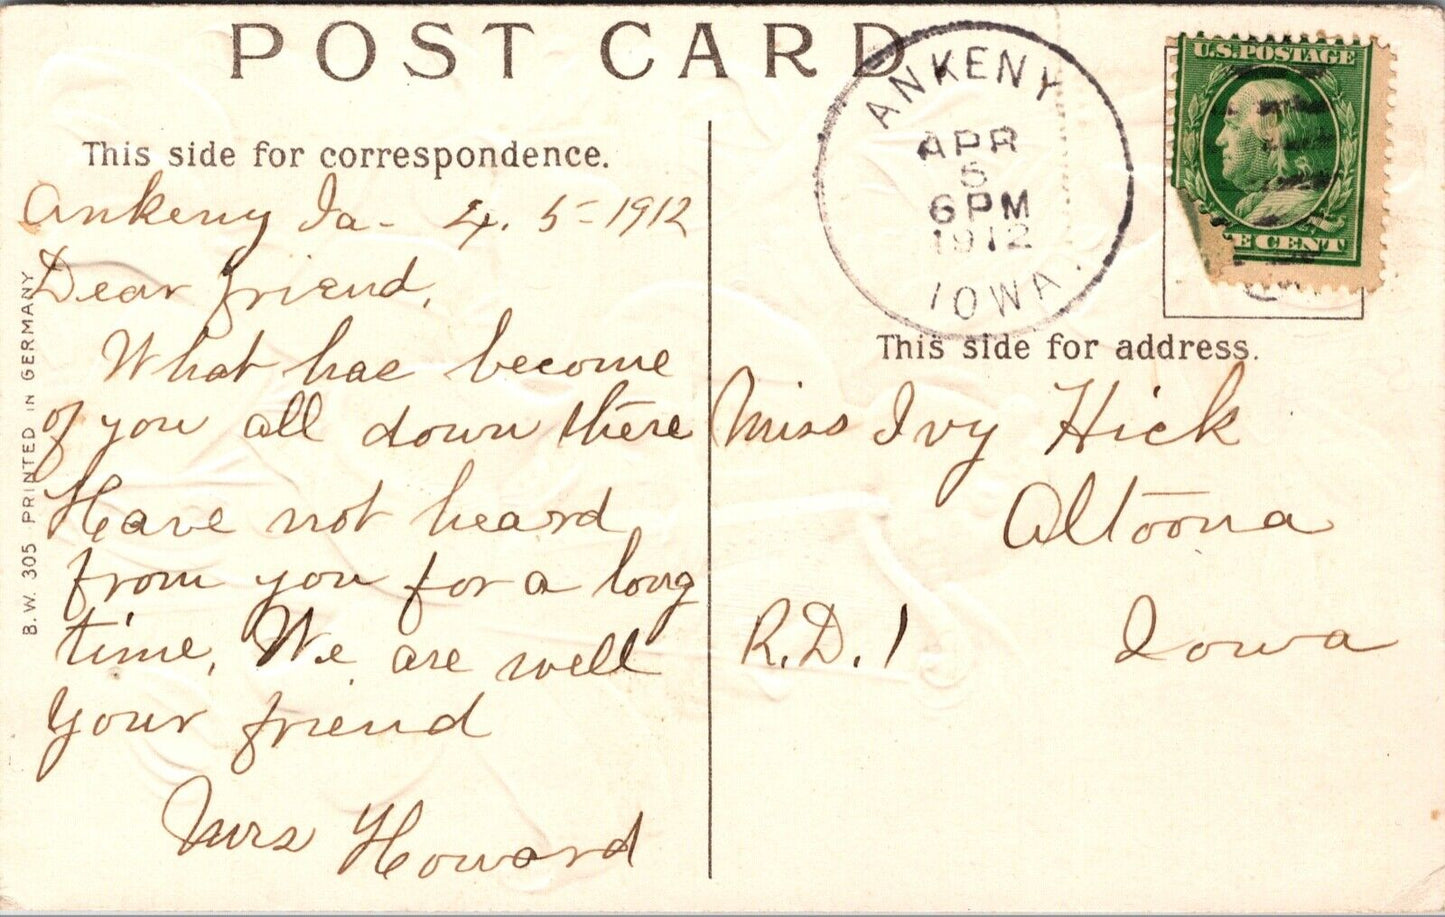 POST CARD
This side for correspondence.
Ankeny Ia - 4. 5 - 1912
Dear friend,
What has become
of you all down there
Have not heard
from you for a long
time, We are well
Your friend
Mrs Howard
B. W. 305 PRINTED IN GERMANY
ANKENY
APR
5
6 PM
1912
IOWA.
U.S. POSTAGE
E CENT
This side for address.
Miss Ivy Hick
Altoona
R.D. 1 Iowa